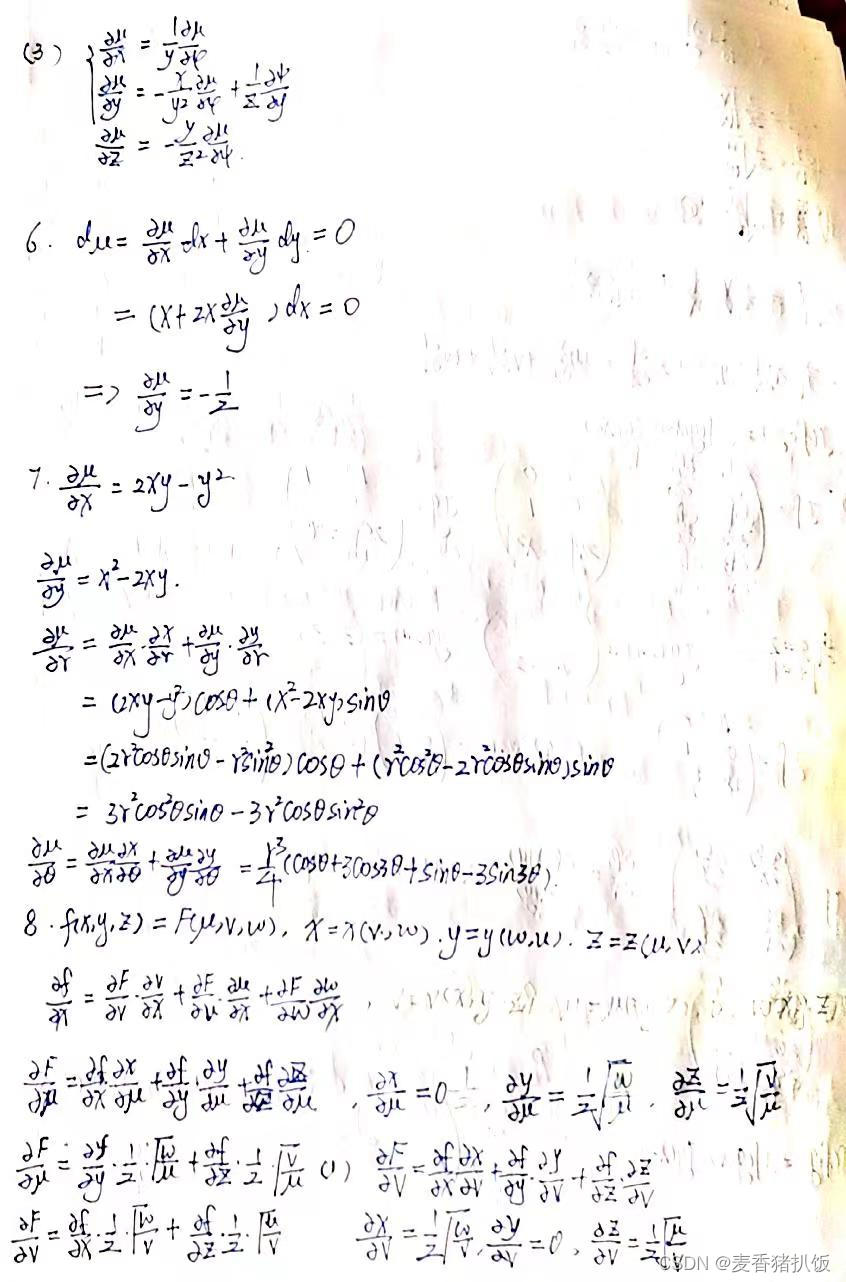 (3) { ∂μ/∂x = 1/y ∂μ/∂φ
∂μ/∂y = -x/y² ∂μ/∂φ + 1/z ∂ψ/∂y
∂μ/∂z = -y/z² ∂μ/∂ψ.
6. dμ = ∂μ/∂x dx + ∂μ/∂y dy = 0
= (x + 2x ∂μ/∂y) dx = 0
=> ∂μ/∂y = -1/2
7. ∂μ/∂x = 2xy - y²
∂μ/∂y = x² - 2xy.
∂μ/∂r = ∂μ/∂x · ∂x/∂r + ∂μ/∂y · ∂y/∂r
= (2xy - y²) cosθ + (x² - 2xy) sinθ
= (2r²cosθsinθ - r²sin²θ) cosθ + (r²cos²θ - 2r²cosθsinθ) sinθ
= 3r²cos²θsinθ - 3r²cosθsin²θ
∂μ/∂θ = ∂μ/∂x ∂x/∂θ + ∂μ/∂y ∂y/∂θ = r³/4 (cosθ + 3cos3θ + sinθ - 3sin3θ)
8. f(x,y,z) = F(μ,v,w), x = x(v,w). y = y(w,u). z = z(μ,v)
∂f/∂x = ∂F/∂v · ∂v/∂x + ∂F/∂u · ∂μ/∂x + ∂F/∂w ∂w/∂x
∂F/∂μ = ∂f/∂x ∂x/∂μ + ∂f/∂y · ∂y/∂μ + ∂f/∂z ∂z/∂μ , ∂x/∂μ = 0 , ∂y/∂μ = 1/2 √(w/μ) , ∂z/∂μ = 1/2 √(v/μ)
∂F/∂μ = ∂f/∂y · 1/2 · √(w/μ) + ∂f/∂z · 1/2 · √(v/μ) (1) ∂F/∂v = ∂f/∂x ∂x/∂v + ∂f/∂y · ∂y/∂v + ∂f/∂z · ∂z/∂v
∂F/∂v = ∂f/∂x · 1/2 · √(w/v) + ∂f/∂z · 1/2 · √(μ/v) ∂x/∂v = 1/2 √(w/v) , ∂y/∂v = 0 , ∂z/∂v = 1/2 √(μ/v)
CSDN @麦香猪扒饭